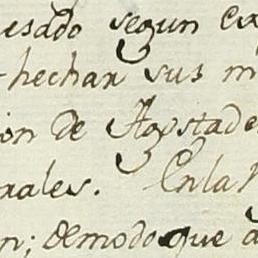 esado segun ex
hechar sus m
ion de Agostade
rales. En la
n; demodo que a